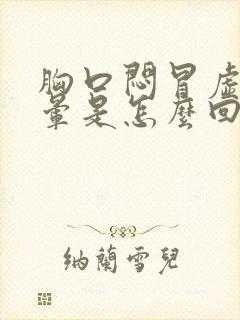 胸口悶冒虛
暈是怎麼回
納蘭雪兒